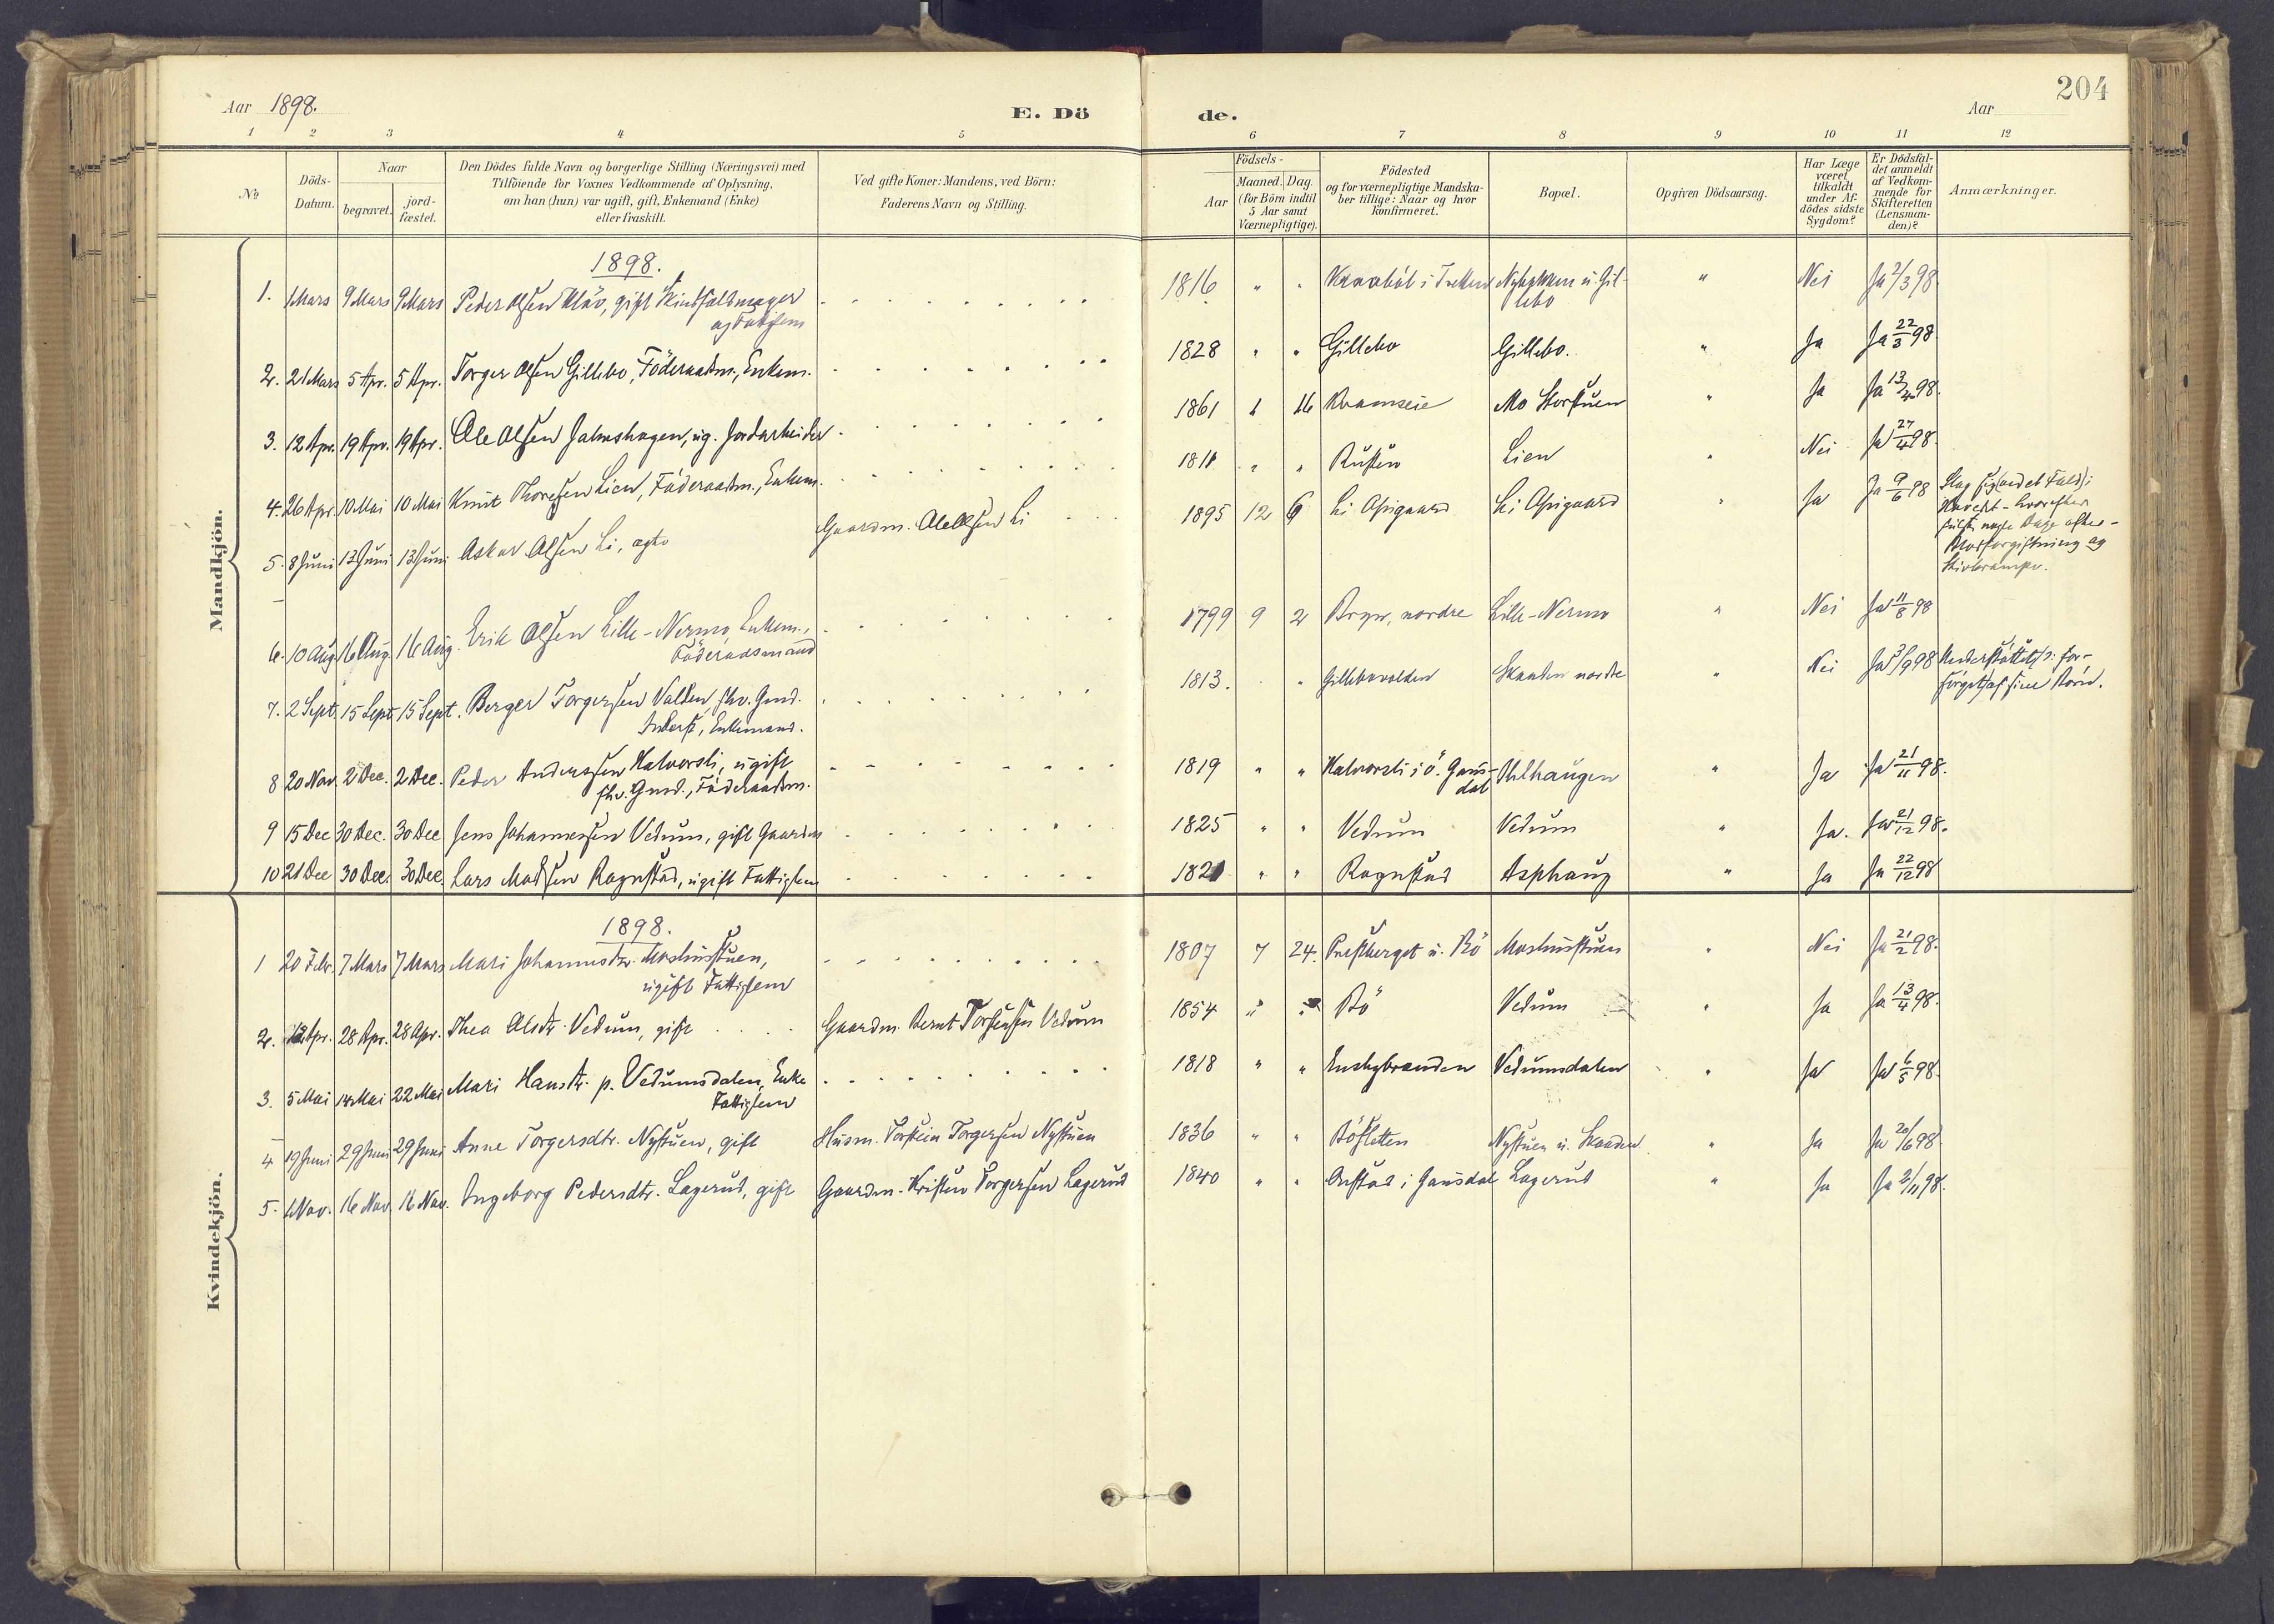 204
Aar 1898.
E. Dö
de.
Aar
1 2 3 4 5 6 7 8 9 10 11 12
No
Döds-Datum.
Naar
begravet.
jord-fæstet.
Den Dödes fulde Navn og borgerlige Stilling (Næringsvei) med
Tilföiende for Voxnes Vedkommende af Oplysning,
om han (hun) var ugift, gift, Enkemand (Enke)
eller fraskilt.
Ved gifte Koner: Mandens, ved Börn:
Faderens Navn og Stilling.
Födsels-
Aar
Maaned. Dag.
(for Börn indtil
5 Aar samt
Værnepligtige).
Födested
og for værnepligtige Mandska-
ber tillige: Naar og hvor
konfirmeret.
Bopæl.
Opgiven Dödsaarsag.
Har Læge
været
tilkaldt
under Af-
dödes sidste
Sygdom?
Er Dödsfal-
det anmeldt
af Vedkom-
mende for
Skifteretten
(Lensman-
den)?
Anmærkninger.
Mandkjön.
1898.
1. 1 Mars 9 Mars 9 Mars Peder Olsen Kläv, gift
og Fattiglem
1816 " " Nybakken u. Gil-
lebo " Nei Ja 2/3 98.
2. 21 Mars 5 Apr. 5 Apr. Torger Olsen Gillebo, Föderaadsm., Enkem. 1828 " " Gillebo Gillebo. " Ja Ja 22/3 98.
3. 12 Apr. 19 Apr. 19 Apr. Ole Olsen Jalmshagen, ug. Jordarbeider 1861 1 16 Kvamseie Mo Storstuen " Ja Ja 13/4 98.
4. 26 Apr. 10 Mai 10 Mai Knut Thoresen Lien, Föderaadsm., Enkem. 1811 " " Rusten Lien " Nei Ja 27/4 98.
5. 8 Juni 13 Juni 13 Juni Askar Olsen Li, ægte Gaardm. Ole Olsen Li 1895 12 6 Li Opigaard Li Opigaard " Ja Ja 9/6 98 Slog sig (ved et Fald) i
- hvorefter
fulgte nogle Dage efter -
Blodforgiftning og
Stivkrampe.
6. 10 Aug 16 Aug. 16 Aug. Erik Olsen Lille-Nermo, Enkem.,
Föderaadsmand
1799 9 2 nordre Lille-Nermo " Nei Ja 11/8 98
7. 2 Sept. 15 Sept. 15 Sept. Berger Torgersen Valden, fhv. Gmd.
Enkemand.
1813. " Gillebovolden Skaaden nordre " Nei Ja 98 Understöttet, for-
sörget af sine Börn.
8 20 Nov. 2 Dec. 2 Dec. Peder Anderssen Halvorsli, ugift
fhv. Gmd., Föderaadsm.
1819 " " Halvorsli i ö. Gaus-
dal Uhlhaugen " Ja Ja 21/11 98.
9 15 Dec 30 Dec. 30 Dec Jens Johannessen Vedum, gift Gaardm 1825 " " Vedum Vedum " Ja. Ja 21/12 98.
10 21 Dec 30 Dec. 30 Dec. Lars Madsen Rognstad, ugift Fattiglem 1821 " " Rognstad Asphaug " Ja Ja 22/12 98
Kvindekjön.
1898.
1 20 Febr. 7 Mars 7 Mars Mari Johannesdtr. Moshusstuen,
ugift Fattiglem
1807 7 24. Prestberget u. Bö Moshusstuen " Nei Ja 21/2 98.
2. 12 Apr. 28 Apr. 28 Apr. Thea Olsdtr. Vedum, gift Gaardm. Bernt Torstensen Vedum 1854 " " Bö Vedum " Ja Ja 13/4 98.
3. 5 Mai 14 Mai 22 Mai Mari Hansdtr. p. Vedumsdalen, Enke
Fattiglem
1818 " " Enshybranden Vedumsdalen " Ja Ja 6/5 98.
4 19 Juni 29 Juni 29 Juni Anne Torgersdtr. Nystuen, gift Husm. Torstein Torgersen Nystuen 1836 " " Böfletten Nystuen u. Skaaden. " Ja Ja 20/6 98
5. 1 Nov. 16 Nov. 16 Nov. Ingeborg Pedersdtr. Lagerud, gift Gaardm. Kristen Torgersen Lagerud 1840 " " i Gausdal Lagerud " Ja Ja 2/11 98.